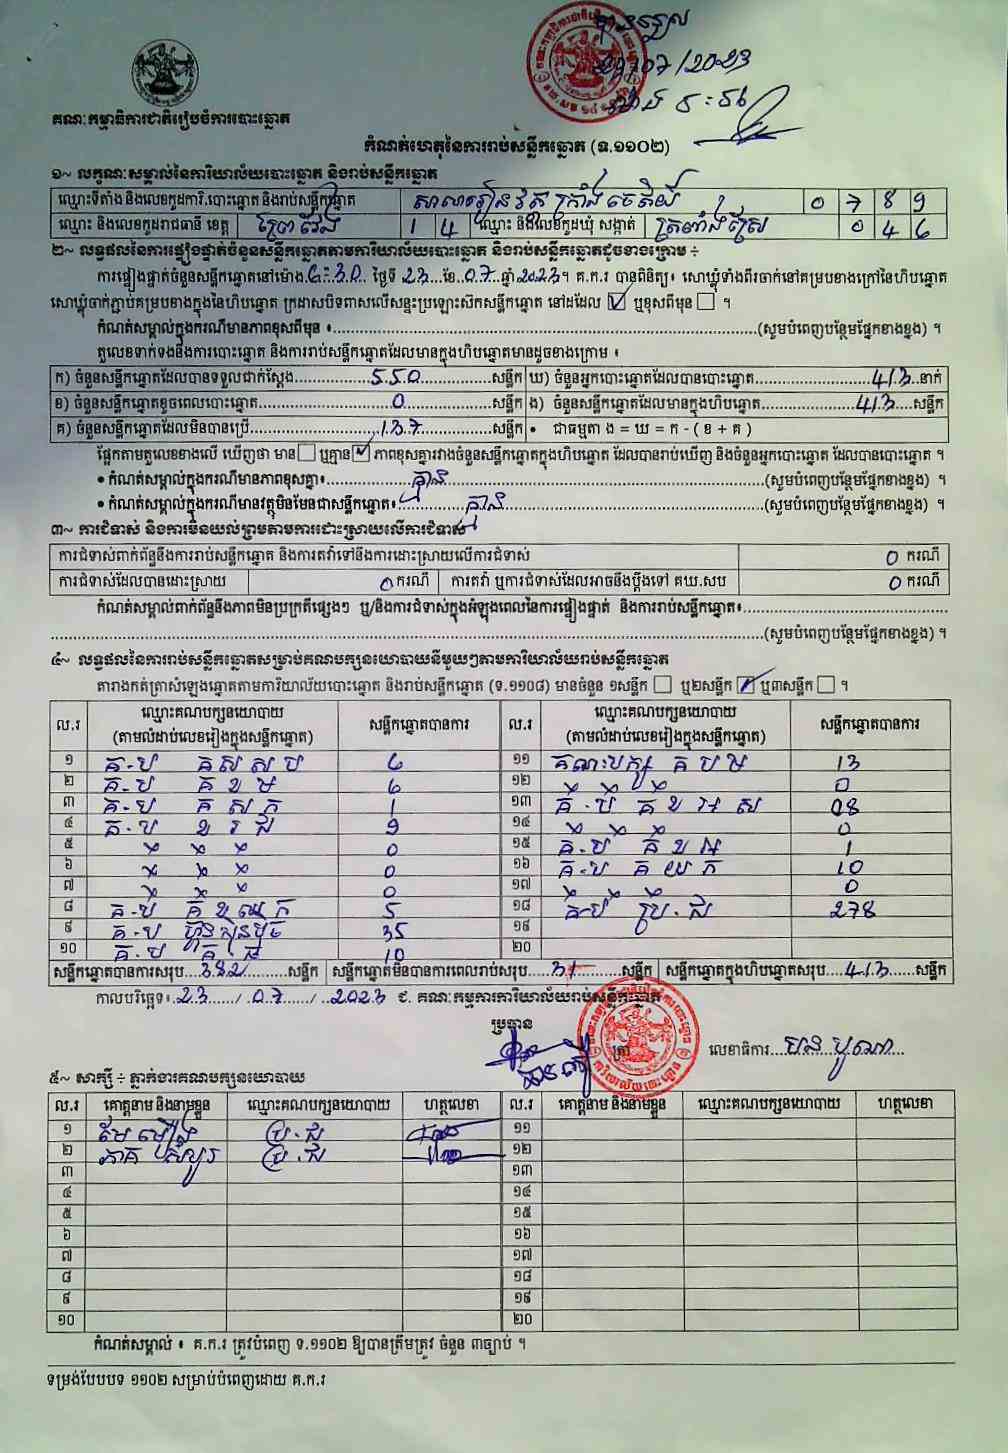 គណៈកម្មាធិការជាតិរៀបចំការបោះឆ្នោត
/07/2023
កំណត់ហេតុនៃការរាប់សន្លឹកឆ្នោត (ទ.១១០២)
១~ លក្ខណៈសម្គាល់នៃការិយាល័យបោះឆ្នោត និងរាប់សន្លឹកឆ្នោត
ឈ្មោះទីតាំង និងលេខកូដការិ.បោះឆ្នោត និងរាប់សន្លឹកឆ្នោត 0 7 8 9
ឈ្មោះ និងលេខកូដរាជធានី ខេត្ត ព្រៃវែង 1 4 ឈ្មោះ និងលេខកូដឃុំ សង្កាត់ 0 4 6
២~ លទ្ធផលនៃការផ្ទៀងផ្ទាត់ចំនួនសន្លឹកឆ្នោតតាមការិយាល័យបោះឆ្នោត និងរាប់សន្លឹកឆ្នោតដូចខាងក្រោម ÷
ការផ្ទៀងផ្ទាត់ចំនួនសន្លឹកឆ្នោតនៅម៉ោង ថ្ងៃទី 23 ខែ 07 ឆ្នាំ 2023។ គ.ក.រ បានពិនិត្យ៖ សោឃ្លុំទាំងពីរចាក់នៅគម្របខាងក្រៅនៃហិបឆ្នោត
សោឃ្លុំចាក់ភ្ជាប់គម្របខាងក្នុងនៃហិបឆ្នោត ក្រដាសបិទពាសលើសន្ទះប្រឡោះស៊កសន្លឹកឆ្នោត នៅដដែល ☑ ឬខុសពីមុន ☐ ។
កំណត់សម្គាល់ក្នុងករណីមានភាពខុសពីមុន ៖ (សូមបំពេញបន្ថែមផ្នែកខាងខ្នង) ។
តួលេខទាក់ទងនឹងការបោះឆ្នោត និងការរាប់សន្លឹកឆ្នោតដែលមានក្នុងហិបឆ្នោតមានដូចខាងក្រោម ៖
ក) ចំនួនសន្លឹកឆ្នោតដែលបានទទួលជាក់ស្តែង 550 សន្លឹក ឃ) ចំនួនអ្នកបោះឆ្នោតដែលបានបោះឆ្នោត 413 នាក់
ខ) ចំនួនសន្លឹកឆ្នោតខូចពេលបោះឆ្នោត 0 សន្លឹក ង) ចំនួនសន្លឹកឆ្នោតដែលមានក្នុងហិបឆ្នោត 413 សន្លឹក
គ) ចំនួនសន្លឹកឆ្នោតដែលមិនបានប្រើ 137 សន្លឹក • ជាធម្មតា ង = ឃ = ក - ( ខ + គ )
ផ្អែកតាមតួលេខខាងលើ ឃើញថា មាន ☐ ឬគ្មាន ☑ ភាពខុសគ្នារវាងចំនួនសន្លឹកឆ្នោតក្នុងហិបឆ្នោត ដែលបានរាប់ឃើញ និងចំនួនអ្នកបោះឆ្នោត ដែលបានបោះឆ្នោត ។
• កំណត់សម្គាល់ក្នុងករណីមានភាពខុសគ្នា៖ គ្មាន (សូមបំពេញបន្ថែមផ្នែកខាងខ្នង) ។
• កំណត់សម្គាល់ក្នុងករណីមានវត្ថុមិនមែនជាសន្លឹកឆ្នោត៖ គ្មាន (សូមបំពេញបន្ថែមផ្នែកខាងខ្នង) ។
៣~ ការជំទាស់ និងការមិនយល់ព្រមតាមការដោះស្រាយលើការជំទាស់
ការជំទាស់ពាក់ព័ន្ធនឹងការរាប់សន្លឹកឆ្នោត និងការតវ៉ាទៅនឹងការដោះស្រាយលើការជំទាស់ 0 ករណី
ការជំទាស់ដែលបានដោះស្រាយ 0 ករណី ការតវ៉ា ឬការជំទាស់ដែលអាចនឹងប្តឹងទៅ គឃ.សប 0 ករណី
កំណត់សម្គាល់ពាក់ព័ន្ធនឹងភាពមិនប្រក្រតីផ្សេងៗ ឬ/និងការជំទាស់ក្នុងអំឡុងពេលនៃការផ្ទៀងផ្ទាត់ និងការរាប់សន្លឹកឆ្នោត៖
(សូមបំពេញបន្ថែមផ្នែកខាងខ្នង) ។
៤~ លទ្ធផលនៃការរាប់សន្លឹកឆ្នោតសម្រាប់គណបក្សនយោបាយនីមួយៗតាមការិយាល័យរាប់សន្លឹកឆ្នោត
តារាងកត់ត្រាសំឡេងឆ្នោតតាមការិយាល័យបោះឆ្នោត និងរាប់សន្លឹកឆ្នោត (ទ.១១០៨) មានចំនួន ១សន្លឹក ☐ ឬ២សន្លឹក ☑ ឬ៣សន្លឹក ☐ ។
ល.រ ឈ្មោះគណបក្សនយោបាយ (តាមលំដាប់លេខរៀងក្នុងសន្លឹកឆ្នោត) សន្លឹកឆ្នោតបានការ ល.រ ឈ្មោះគណបក្សនយោបាយ (តាមលំដាប់លេខរៀងក្នុងសន្លឹកឆ្នោត) សន្លឹកឆ្នោតបានការ
១ គ.ប 6 ១១ គណបក្ស 13
២ គ.ប គ ខ ម 6 ១២ 0
៣ គ.ប គ ស ក 1 ១៣ 08
៤ គ.ប 9 ១៤ 0
៥ 0 ១៥ គ.ប 1
៦ 0 ១៦ គ.ប គ យ ក 10
៧ 0 ១៧ 0
៨ គ.ប 5 ១៨ គ.ប ប្រ.ជ 278
៩ គ.ប ហ្វ៊ុនស៊ិនប៉ិច 35 ១៩
១០ គ.ប 10 ២០
សន្លឹកឆ្នោតបានការសរុប 382 សន្លឹក សន្លឹកឆ្នោតមិនបានការពេលរាប់សរុប 31 សន្លឹក សន្លឹកឆ្នោតក្នុងហិបឆ្នោតសរុប 413 សន្លឹក
កាលបរិច្ឆេទ៖ 23 / 07 / 2023 ជ. គណៈកម្មការការិយាល័យរាប់សន្លឹកឆ្នោត
ប្រធាន
ត្រា លេខាធិការ
៥~ សាក្សី ÷ ភ្នាក់ងារគណបក្សនយោបាយ
ល.រ គោត្តនាម និងនាមខ្លួន ឈ្មោះគណបក្សនយោបាយ ហត្ថលេខា ល.រ គោត្តនាម និងនាមខ្លួន ឈ្មោះគណបក្សនយោបាយ ហត្ថលេខា
១ ប្រ.ជ ១១
២ ប្រ.ជ ១២
៣ ១៣
៤ ១៤
៥ ១៥
៦ ១៦
៧ ១៧
៨ ១៨
៩ ១៩
១០ ២០
កំណត់សម្គាល់ ៖ គ.ក.រ ត្រូវបំពេញ ទ.១១០២ ឱ្យបានត្រឹមត្រូវ ចំនួន ៣ច្បាប់ ។
ទម្រង់បែបបទ ១១០២ សម្រាប់បំពេញដោយ គ.ក.រ